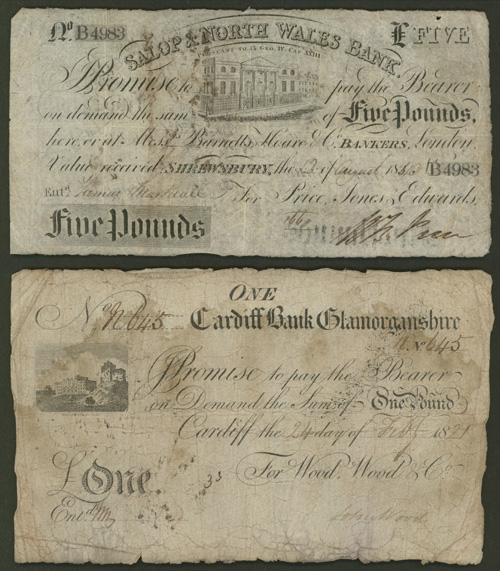 No B4983
£ FIVE
SALOP & NORTH WALES BANK.
I Promise to pay the Bearer
on demand the sum of Five Pounds,
here, or at Messrs Barnetts, Hoare & Co. BANKERS, London,
Value received. SHREWSBURY, the August 18
B4983
Entd. For Price, Jones & Edwards,
Five Pounds
ONE
No N645 Cardiff Bank Glamorganshire
N645
I Promise to pay the Bearer
on Demand the Sum of One Pound
Cardiff the 24 day of Feby 1821
£ One. For Wood, Wood & Co
Entd.
John Wood